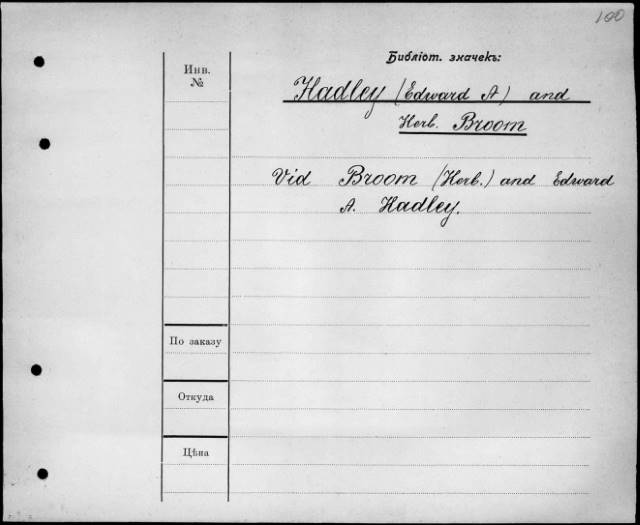 100
Библіот. значекъ:
Инв.
№
Hadley (Edward A) and
Herb. Broom
Vid Broom (Herb.) and Edward
A. Hadley.
По заказу
Откуда
Цѣна